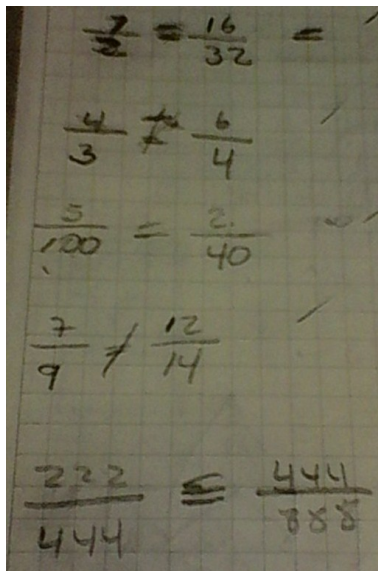 7/2 = 16/32 =
4/3 ≠ 6/4
5/100 = 2/40
7/9 ≠ 12/14
222/444 = 444/888